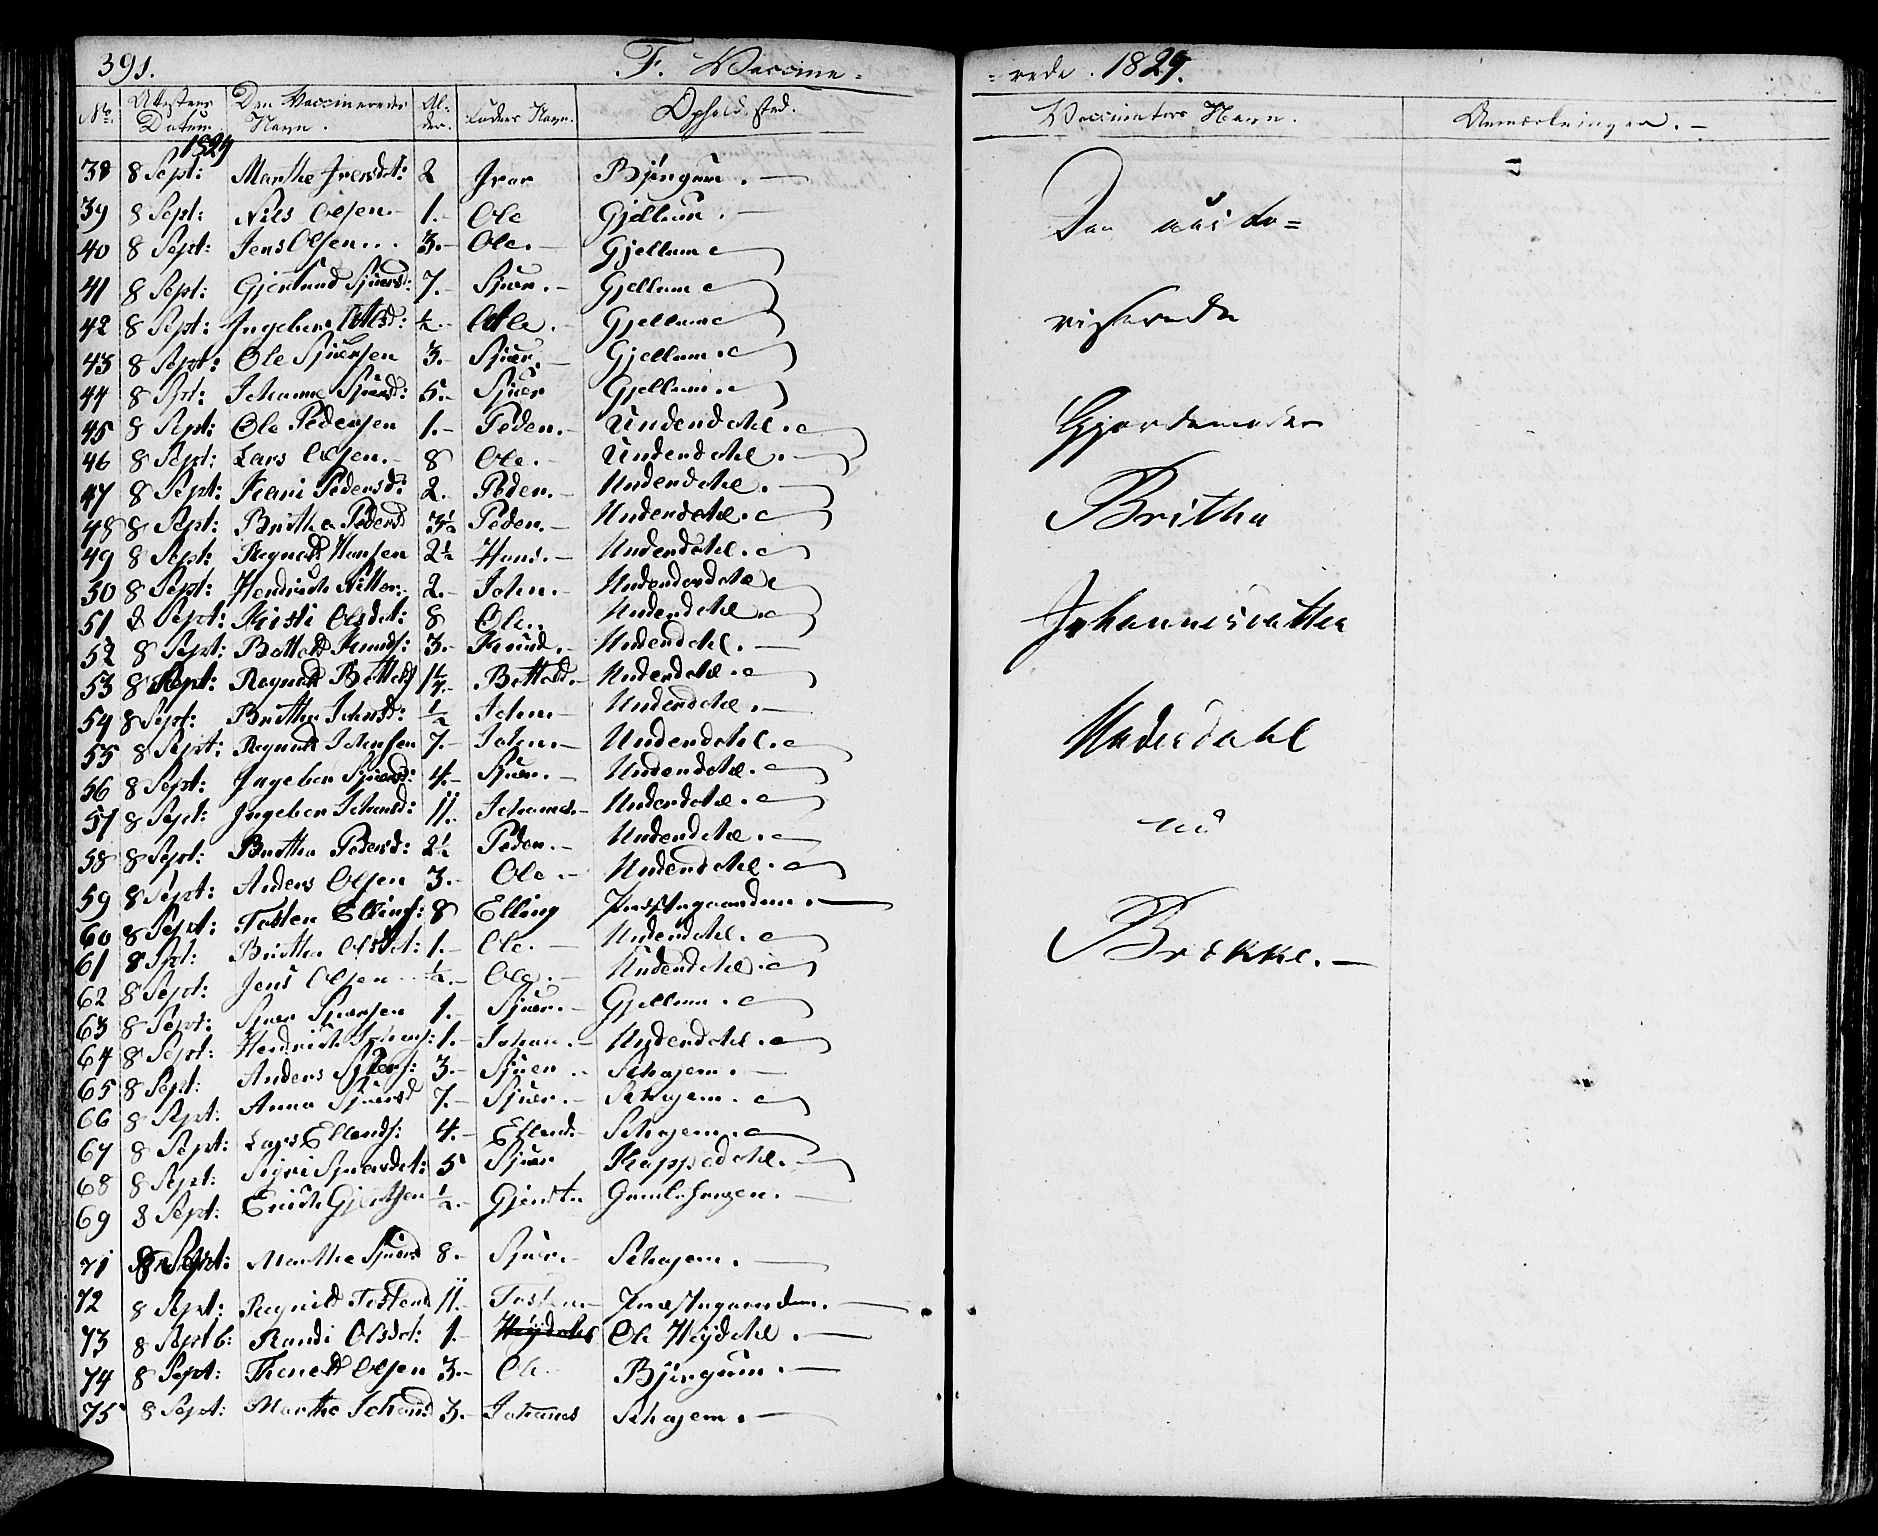 391. F. Vaccine-
No. Attestens Datum Den Vaccineredes Navn. Al-der. Faders Navn. Opholdssted.
1829
38 8 Sept: Marthe Iversdt: 2 Iver Bjørgum. —
39 8 Sept: Nils Olsen. 1. Ole Gjellum. —
40 8 Sept: Jens Olsen.. 3. Ole. Gjellum
41 8 Sept: Gjertrud Sjursd: 7. Sjur. Gjellum
42 8 Sept: Ingebor Olsd: ½. Ole. Gjellum
43 8 Sept: Ole Sjursen 3. Sjur. Gjellum.
44 8 Spt: Johanne Sjursd: 5. Sjur Gjellum.
45 8 Sept: Ole Pedersen 1. Peder. Underdahl.
46 8 Sept: Lars Olsen. 8 Ole. Underdahl.
47 8 Sept: Kari Pedersd: 2. Peder. Underdahl.
48 8 Sept: Britha Peders 3½ Peder. Underdahl.
49 8 Sept: Ragnald Hansen 2½ Hans. Underdahl.
50 8 Sept: Hendrich 2. John. Underdahl
51 8 Sept: Kristi Olsdt: 8 Ole. Underdahl.
52 8 Sept: Bottold Knuds: 3. Knud. Underdahl.
53 8 Sept: Ragnald Bottolds 1½. Bottold. Underdahl.
54 8 Sept: Britha Johnsd: ½ John Underdahl.
55 8 Sept: Ragnald Johnsen 7. John. Underdahl.
56 8 Sept: Ingebor Sjursd: 4. Sjur. Underdahl.
57 8 Sept: Ingebor Johansd: 11. Johannes. Underdahl.
58 8 Sept: Britha Pedersd: 2½ Peder. Underdahl.
59 8 Sept: Anders Olsen 3. Ole. Underdahl.
60 8 Sept: Tosten Ellings: 8 Elling Præstegaarden.
61 8 Spt: Britha Olsdt: 1. Ole. Underdahl.
62 8 Sept: Jens Olsen ½. Ole. Underdahl.
63 8 Sept: Sjur Sjursen 1. Sjur. Gjellum.
64 8 Sept: Hendrich Johans: 1. Johan. Underdahl.
65 8 Sept: Anders Sjurs: 3. Sjur. Schajem.
66 8 Sept: Anna Sjursd 7. Sjur. Schajem.
67 8 Sept: Lars Ellends: 4. Ellend. Schajem.
68 8 Sept: Siri Sjursdt: 5 Sjur Kappadahl.
69 8 Sept: Erich Gjertsen ½. Gjert
71 8 Sept: Marthe Sjursd 8. Sjur. Schajem.
72 8 Sept: Ragnild Tostensd 11. Tosten. Præstegaarden.
73 8 Septb: Randi Olsdt: 1. Høydahl Ole Høydahl.
74 8 Sept: Olsen 3. Ole. Bjørgum.
75 8 Sept: Marthe Johansd 3. Johannes Schajem.
-rede. 1829.
Vaccinators Navn. Anmærkninger. —
Den auto=
riserede
Gjordemoder
Britha
Johannesdatter
Underdahl
né
Brekke. —